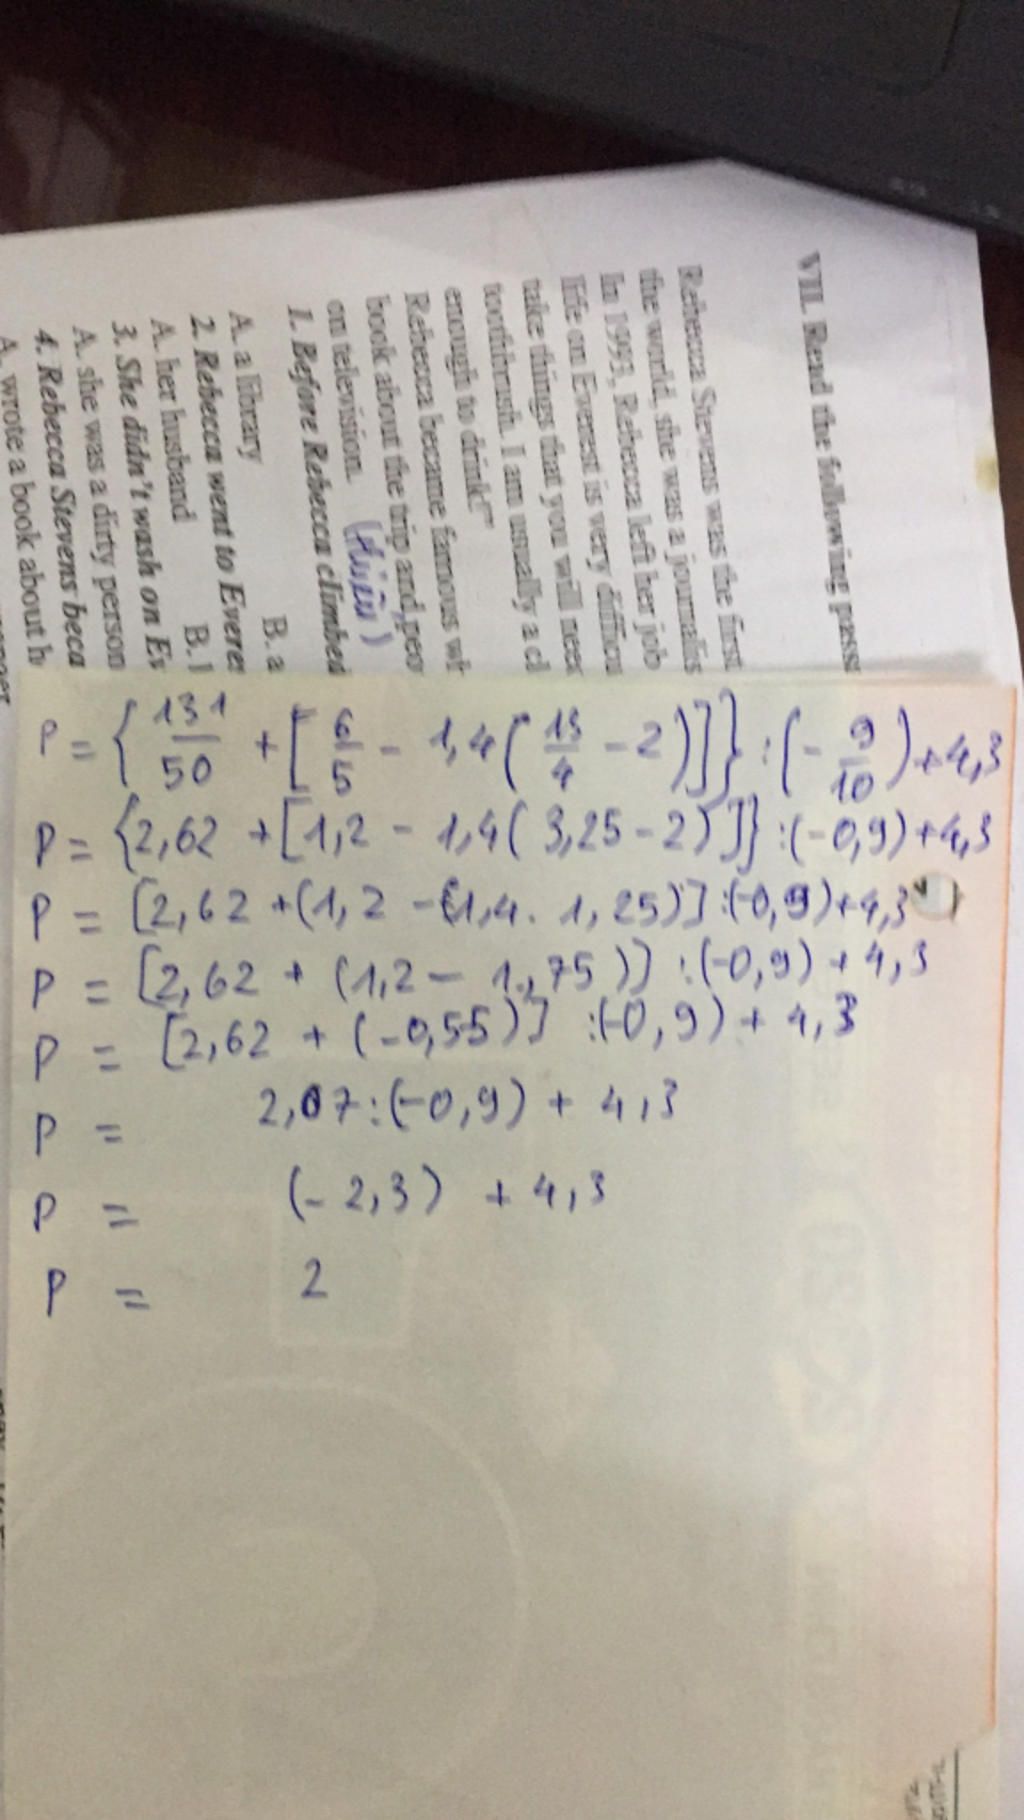 VII. Read the following
Rebecca Stevens was the first
the world, she was a journalis
In 1993, Rebecca left her job
life on Everest is very difficu
take things that you will need
toothbrush. I am usually a cl
enough to drink!"
Rebecca became famous wh
book about the trip and peo
on television.
1. Before Rebecca climbed
A. a library B. a
2. Rebecca went to Everes
A. her husband B. 1
3. She didn't wash on Ev
A. she was a dirty person
4. Rebecca Stevens beca
A. wrote a book about h
P = {131/50 + [6/5 - 1,4(13/4 - 2)]} : (-9/10) + 4,3
P = {2,62 + [1,2 - 1,4(3,25 - 2)]} : (-0,9) + 4,3
P = [2,62 + (1,2 - (1,4. 1,25)] : (-0,9) + 4,3
P = [2,62 + (1,2 - 1,75)] : (-0,9) + 4,3
P = [2,62 + (-0,55)] : (-0,9) + 4,3
P = 2,07 : (-0,9) + 4,3
P = (-2,3) + 4,3
P = 2